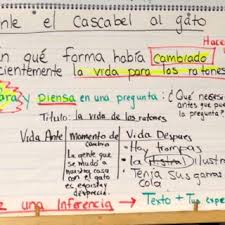 nle el Cascabel al gato
Hace
n qué forma había cambiado
cientemente la vida para los ratones
ara y piensa en una pregunta: ¿Qué neces
antes que pue
la pregunta?
Título: la vida de los ratones
Vida Ante
Momento de cambio
Vida Despues
La gente que se mudó a nuestra casa con el gato
Hay trampas
la
ilustr
Tenía sus garras
cola
e una Inferencia → Texto + Tu expe